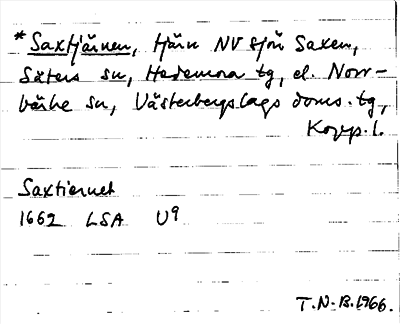 * Saxtjärnen, tjärn NV sjön Saxen,
Säters sn, Hedemora tg, el. Norr-
bärke sn, Västerbergslags doms. tg,
Kopp. l.
Saxtiernet
1662 LSA U9
T.N-B.1966.